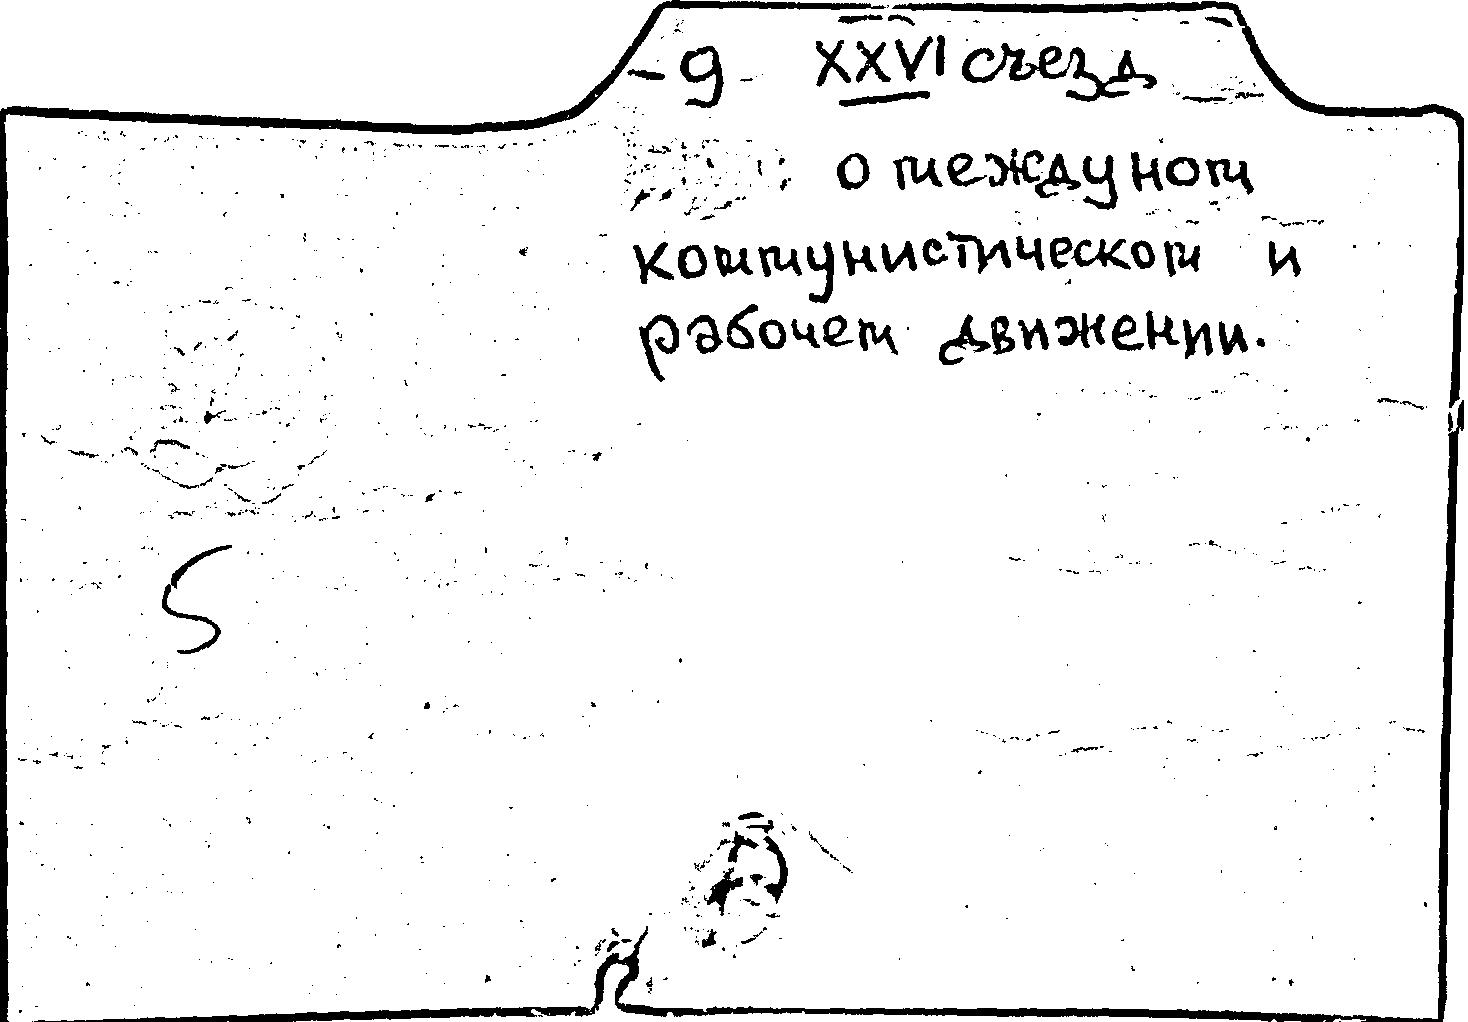 -9- XXVI съезд
о междуном
коммунистическом и
рабочем движении.
S